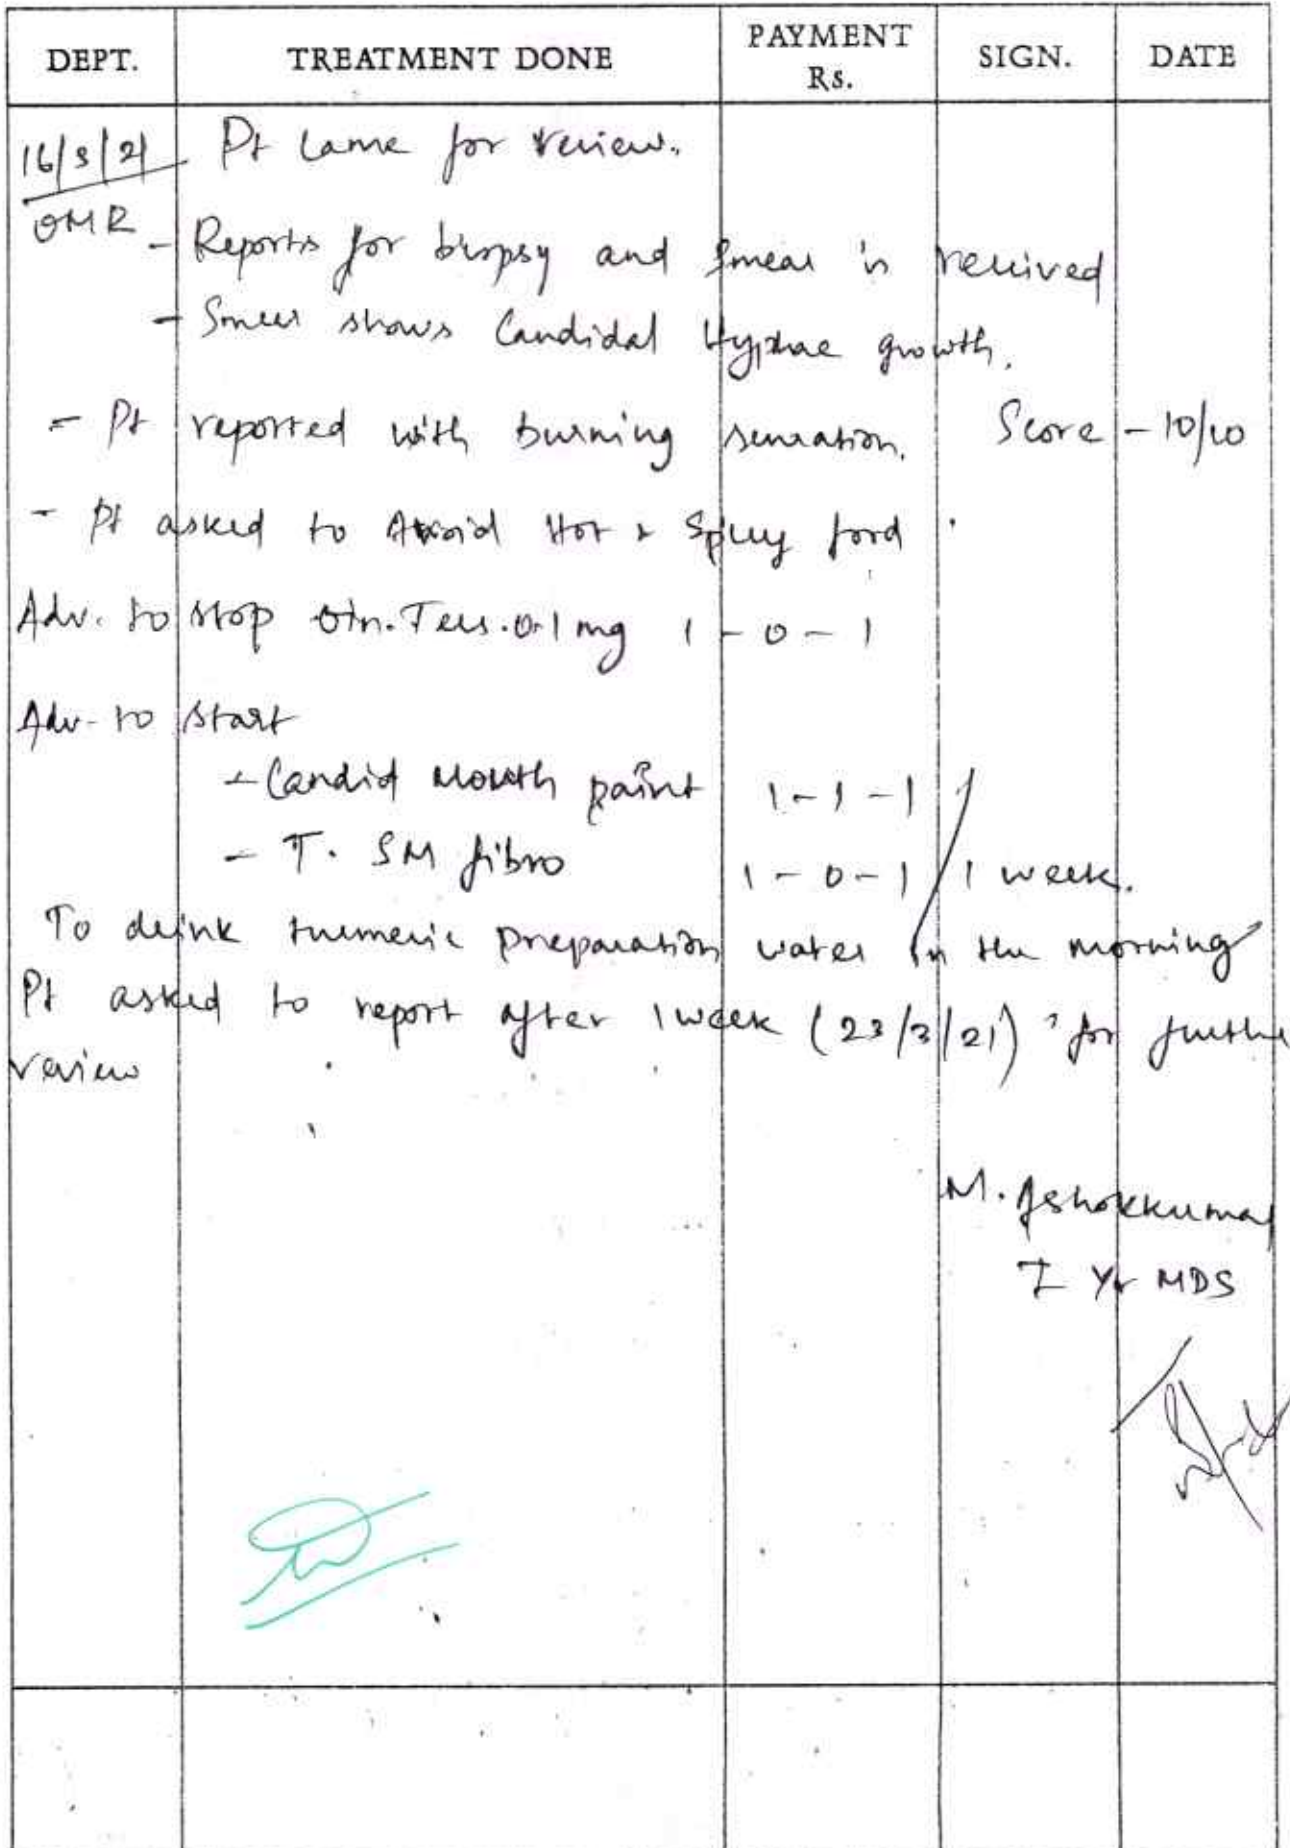 DEPT. TREATMENT DONE PAYMENT Rs. SIGN. DATE
16/3/21 Pt Came for review.
OMR - Reports for biopsy and smear is received
- Smear shows Candidal Hyphae growth.
- Pt reported with burning sensation. Score - 10/10
- Pt asked to Avoid Hot & Spicy food.
Adv. to stop Oin. Tess. 0.1 mg 1 - 0 - 1
Adv. to start
- Candid Mouth paint 1 - 1 - 1
- T. SM fibro 1 - 0 - 1 / 1 week.
To drink turmeric preparation water in the morning
Pt asked to report after 1 week (23/3/21) for further
review
M. Ashokkumar
I Yr MDS